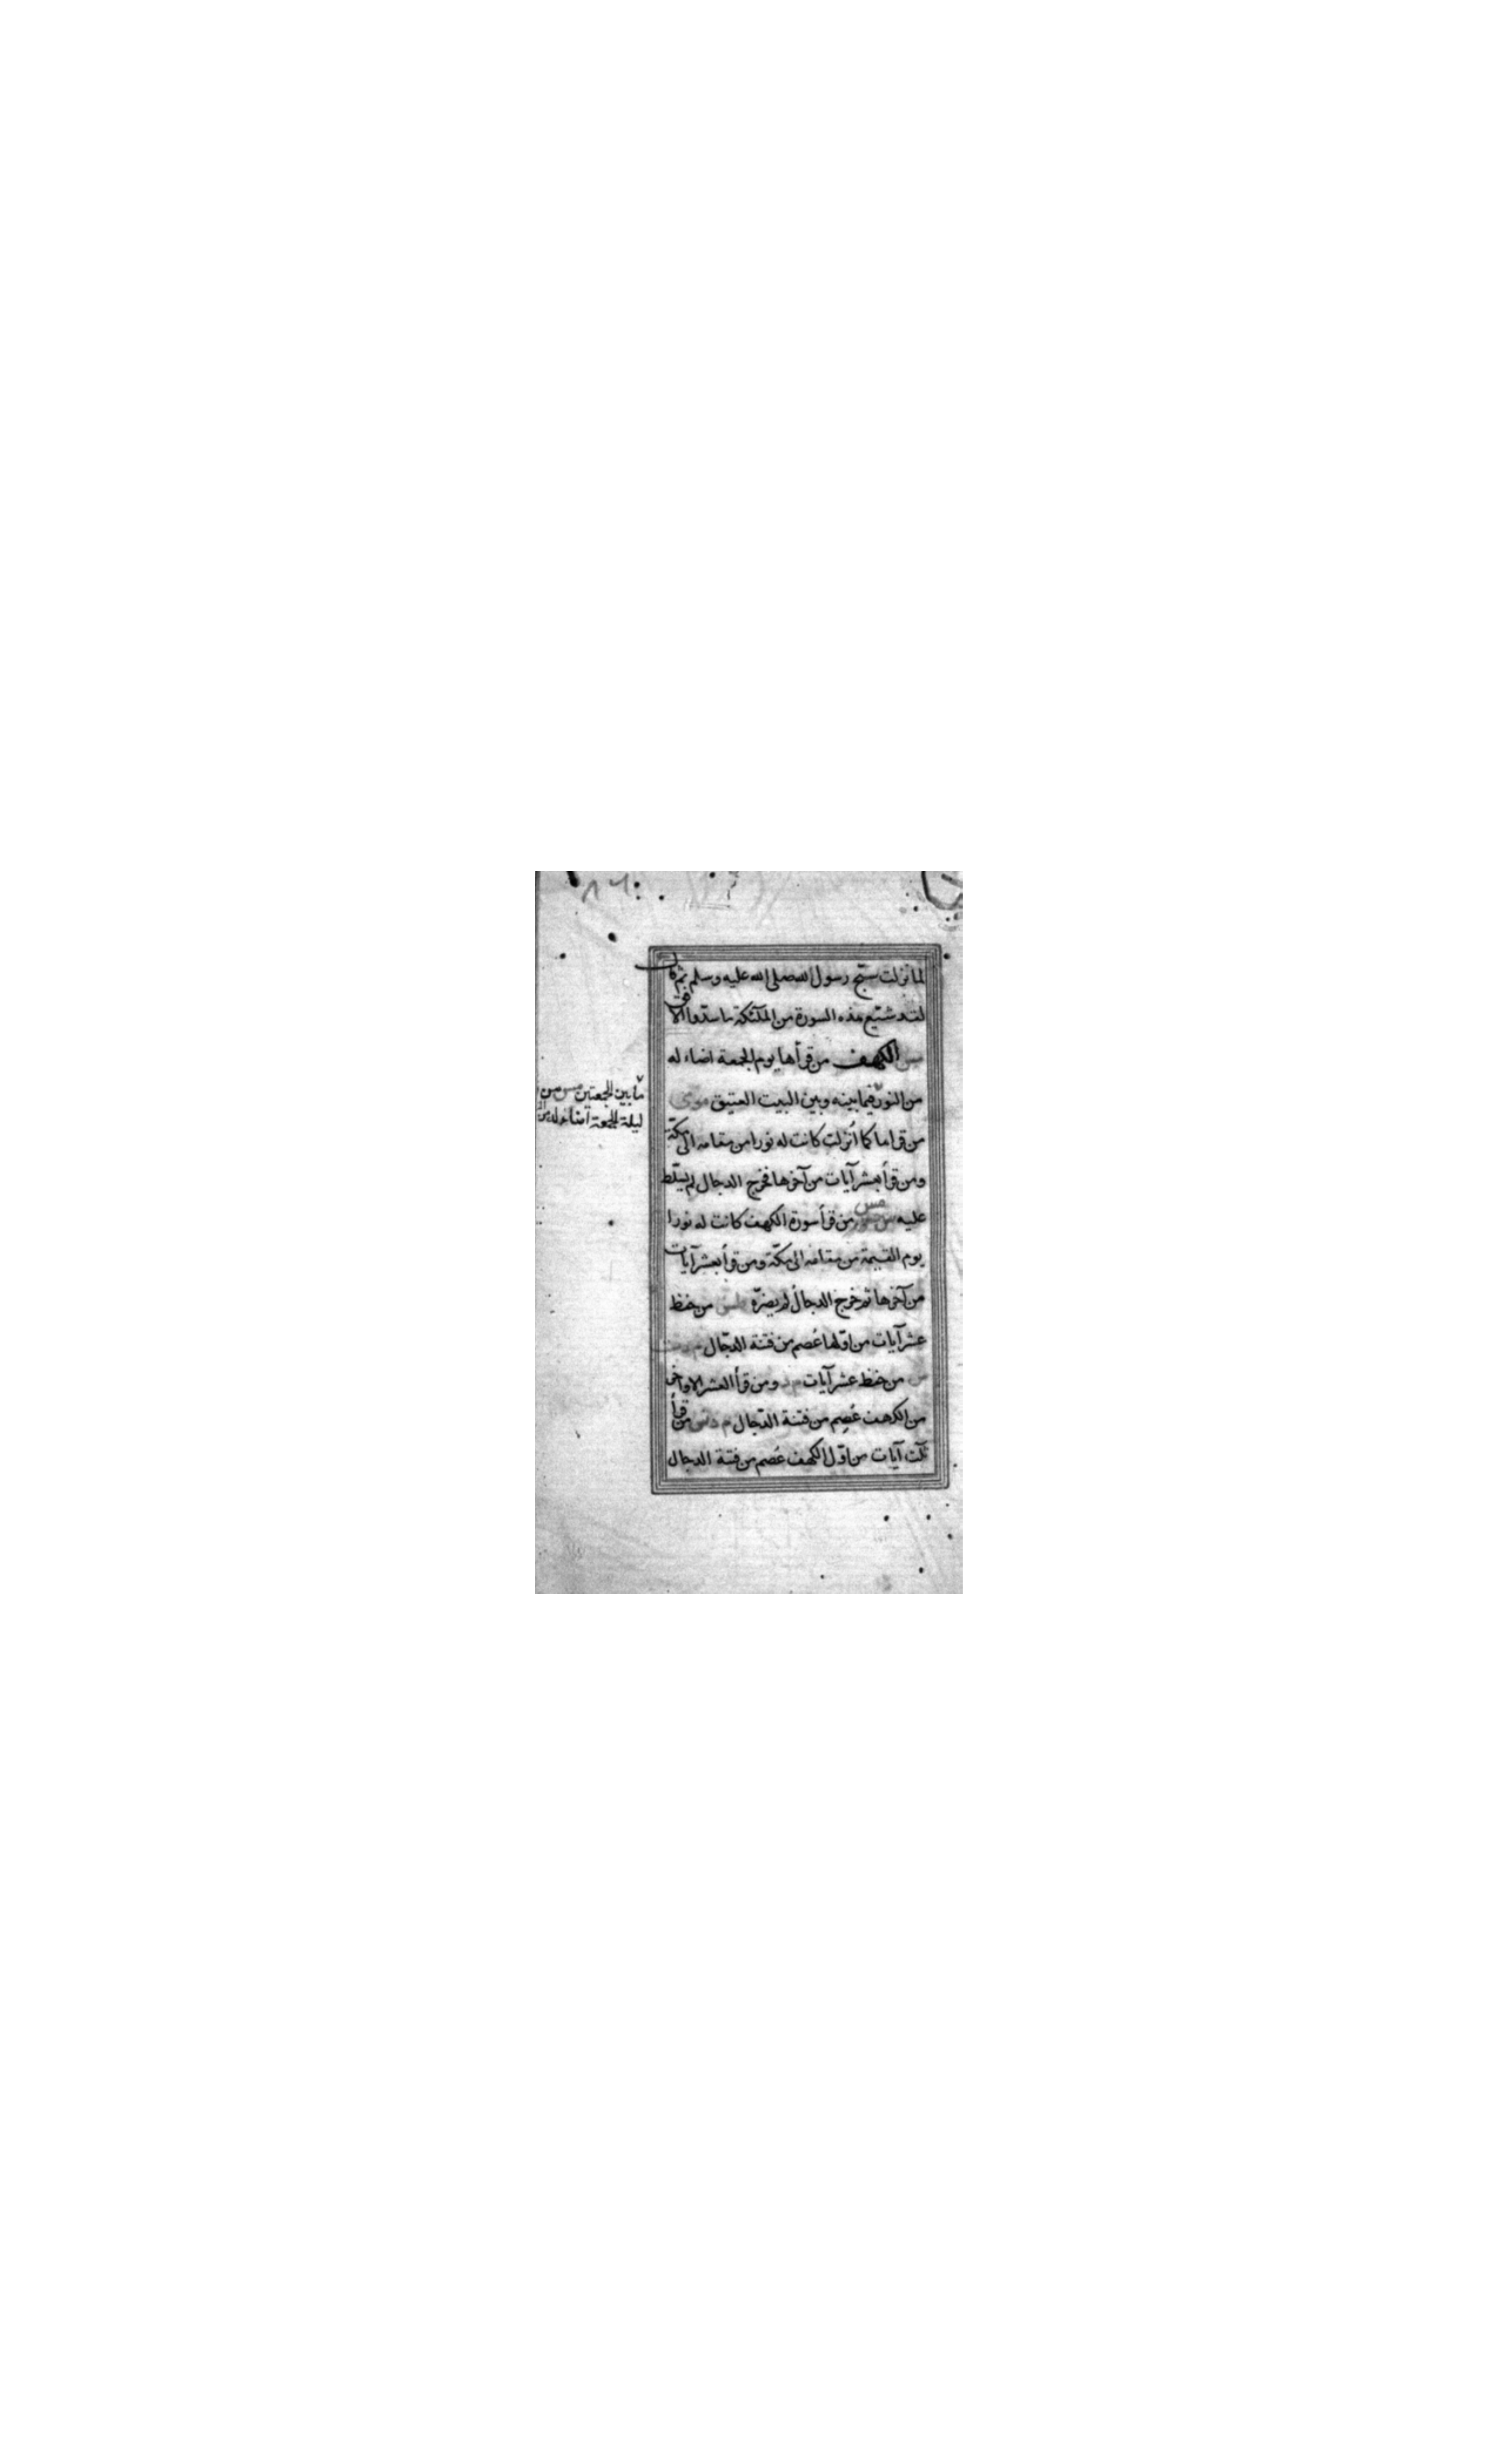 لما نزلت سبّح رسول الله صلى الله عليه وسلم ثم قال
لقد شيّع هذه السورة من الملٓئكة ما سدّوا الافق
مس الكهف من قرأها يوم الجمعة اضاء له
من النور فيما بينه وبين البيت العتيق موى
من قراها كما اُنزلت كانت له نورا من مقامه الى مكّة
ومن قرأ بعشر آيات من آخرها فخرج الدجال لم يسلّط
عليه مس من قرأ سورة الكهف كانت له نورا
يوم القيٰمة من مقامه الى مكّة ومن قرأ بعشر آيات
من آخرها ثم خرج الدجال لم يضرّه طس من حفظ
عشر آيات من اوّلها عُصم من فتنة الدجّال م د
س من حفظ عشر آيات م د ومن قرأ العشر الاواخر
من الكهف عُصِم من فتنة الدجّال م د س من قرأ
ثلٰث آيات من اوّل الكهف عُصم من فتنة الدجال
ما بين الجمعتين مس من
ليلة الجمعة اضاء له من